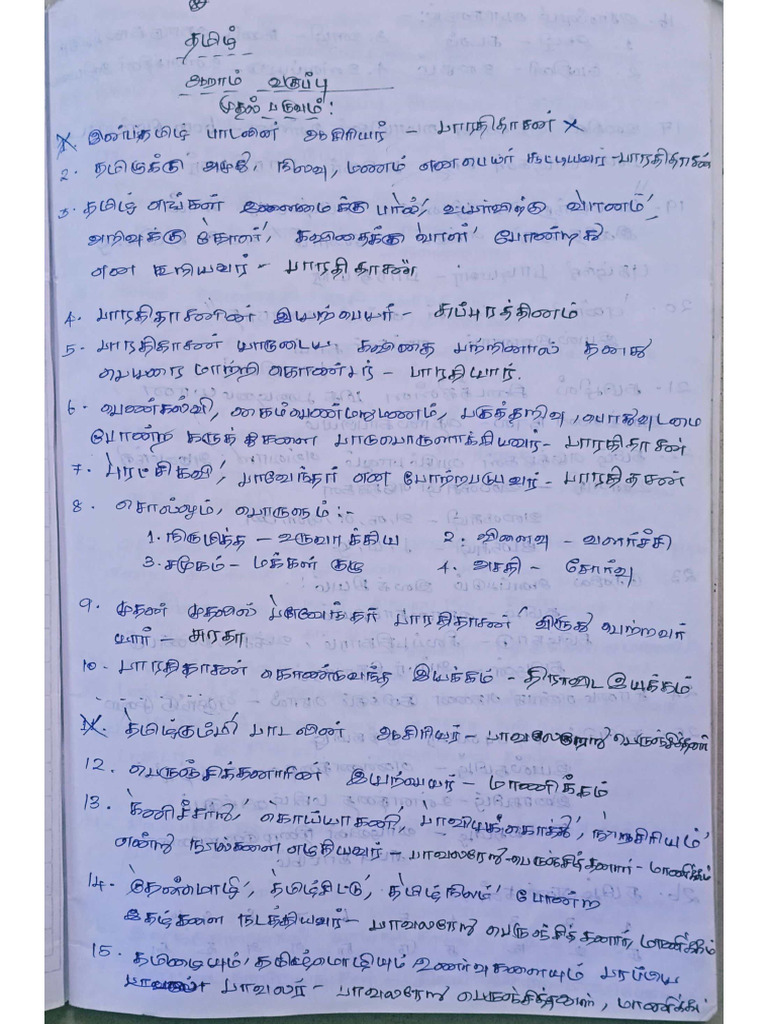 தமிழ்
ஆறாம் வகுப்பு
முதல் பருவம் :
1. இன்பத்தமிழ் பாடலின் ஆசிரியர் - பாரதிதாசன் x
2. தமிழுக்கு அமுது, நிலவு, மணம் எனபெயர் சூட்டியவர் - பாரதிதாசன்
3. தமிழ் எங்கள் இளமைக்கு பால்', உயர்விற்கு வானம்',
அறிவுக்கு தோள்', கவிதைக்கு வாள்' போன்றது
என கூறியவர் - பாரதிதாசன்
4. பாரதிதாசனின் இயற்பெயர் - சுப்புரத்தினம்
5. பாரதிதாசன் யாருடைய கவிதை பற்றினால் தனது
பெயரை மாற்றி கொண்டர் - பாரதியார்.
6. பெண்கல்வி, கைம்பெண்மறுமணம், பகுத்தறிவு, பொதுவுடமை
போன்ற கருத்துகளை பாடுபொருளாக்கியவர் - பாரதிதாசன்
7. புரட்சிகவி', பாவேந்தர் என போற்றபடுபவர் - பாரதிதாசன்
8. சொல்லும், பொருளும் :-
1. நிருமித்த - உருவாக்கிய 2. விளைவு - வளர்ச்சி
3. சமூகம் - மக்கள் குழு 4. அசதி - சோர்வு
9. முதன் முதலில் பாவேந்தர் பாரதிதாசன் விருது பெற்றவர்
யார் - சுரதா
10. பாரதிதாசன் கொண்டுவந்த இயக்கம் - திராவிட இயக்கம்
11. தமிழ்கும்மி பாடலின் ஆசிரியர் - பாவலரேறு பெருஞ்சித்தனார்
12. பெருஞ்சித்தனாரின் இயற்பெயர் - மாணிக்கம்
13. கனிச்சாறு', கொய்யாகனி, பாவியக்கொத்து, நூறாசிரியம்'
என்ற நூல்களை எழுதியவர் - பாவலரேறு பெருஞ்சித்தனார் - மாணிக்கம்
14. தென்மொழி', தமிழ்சிட்டு', தமிழ்நிலம்' போன்ற
இதழ்களை நடத்தியவர் - பாவலரேறு பெருஞ்சித்தனார், மாணிக்கம்
15. தமிழையும், தமிழ்மொழியும் உணர்வுகளையும் பரப்பிய
பாவலர் - பாவலரேறு பெருஞ்சித்தனார், மாணிக்க